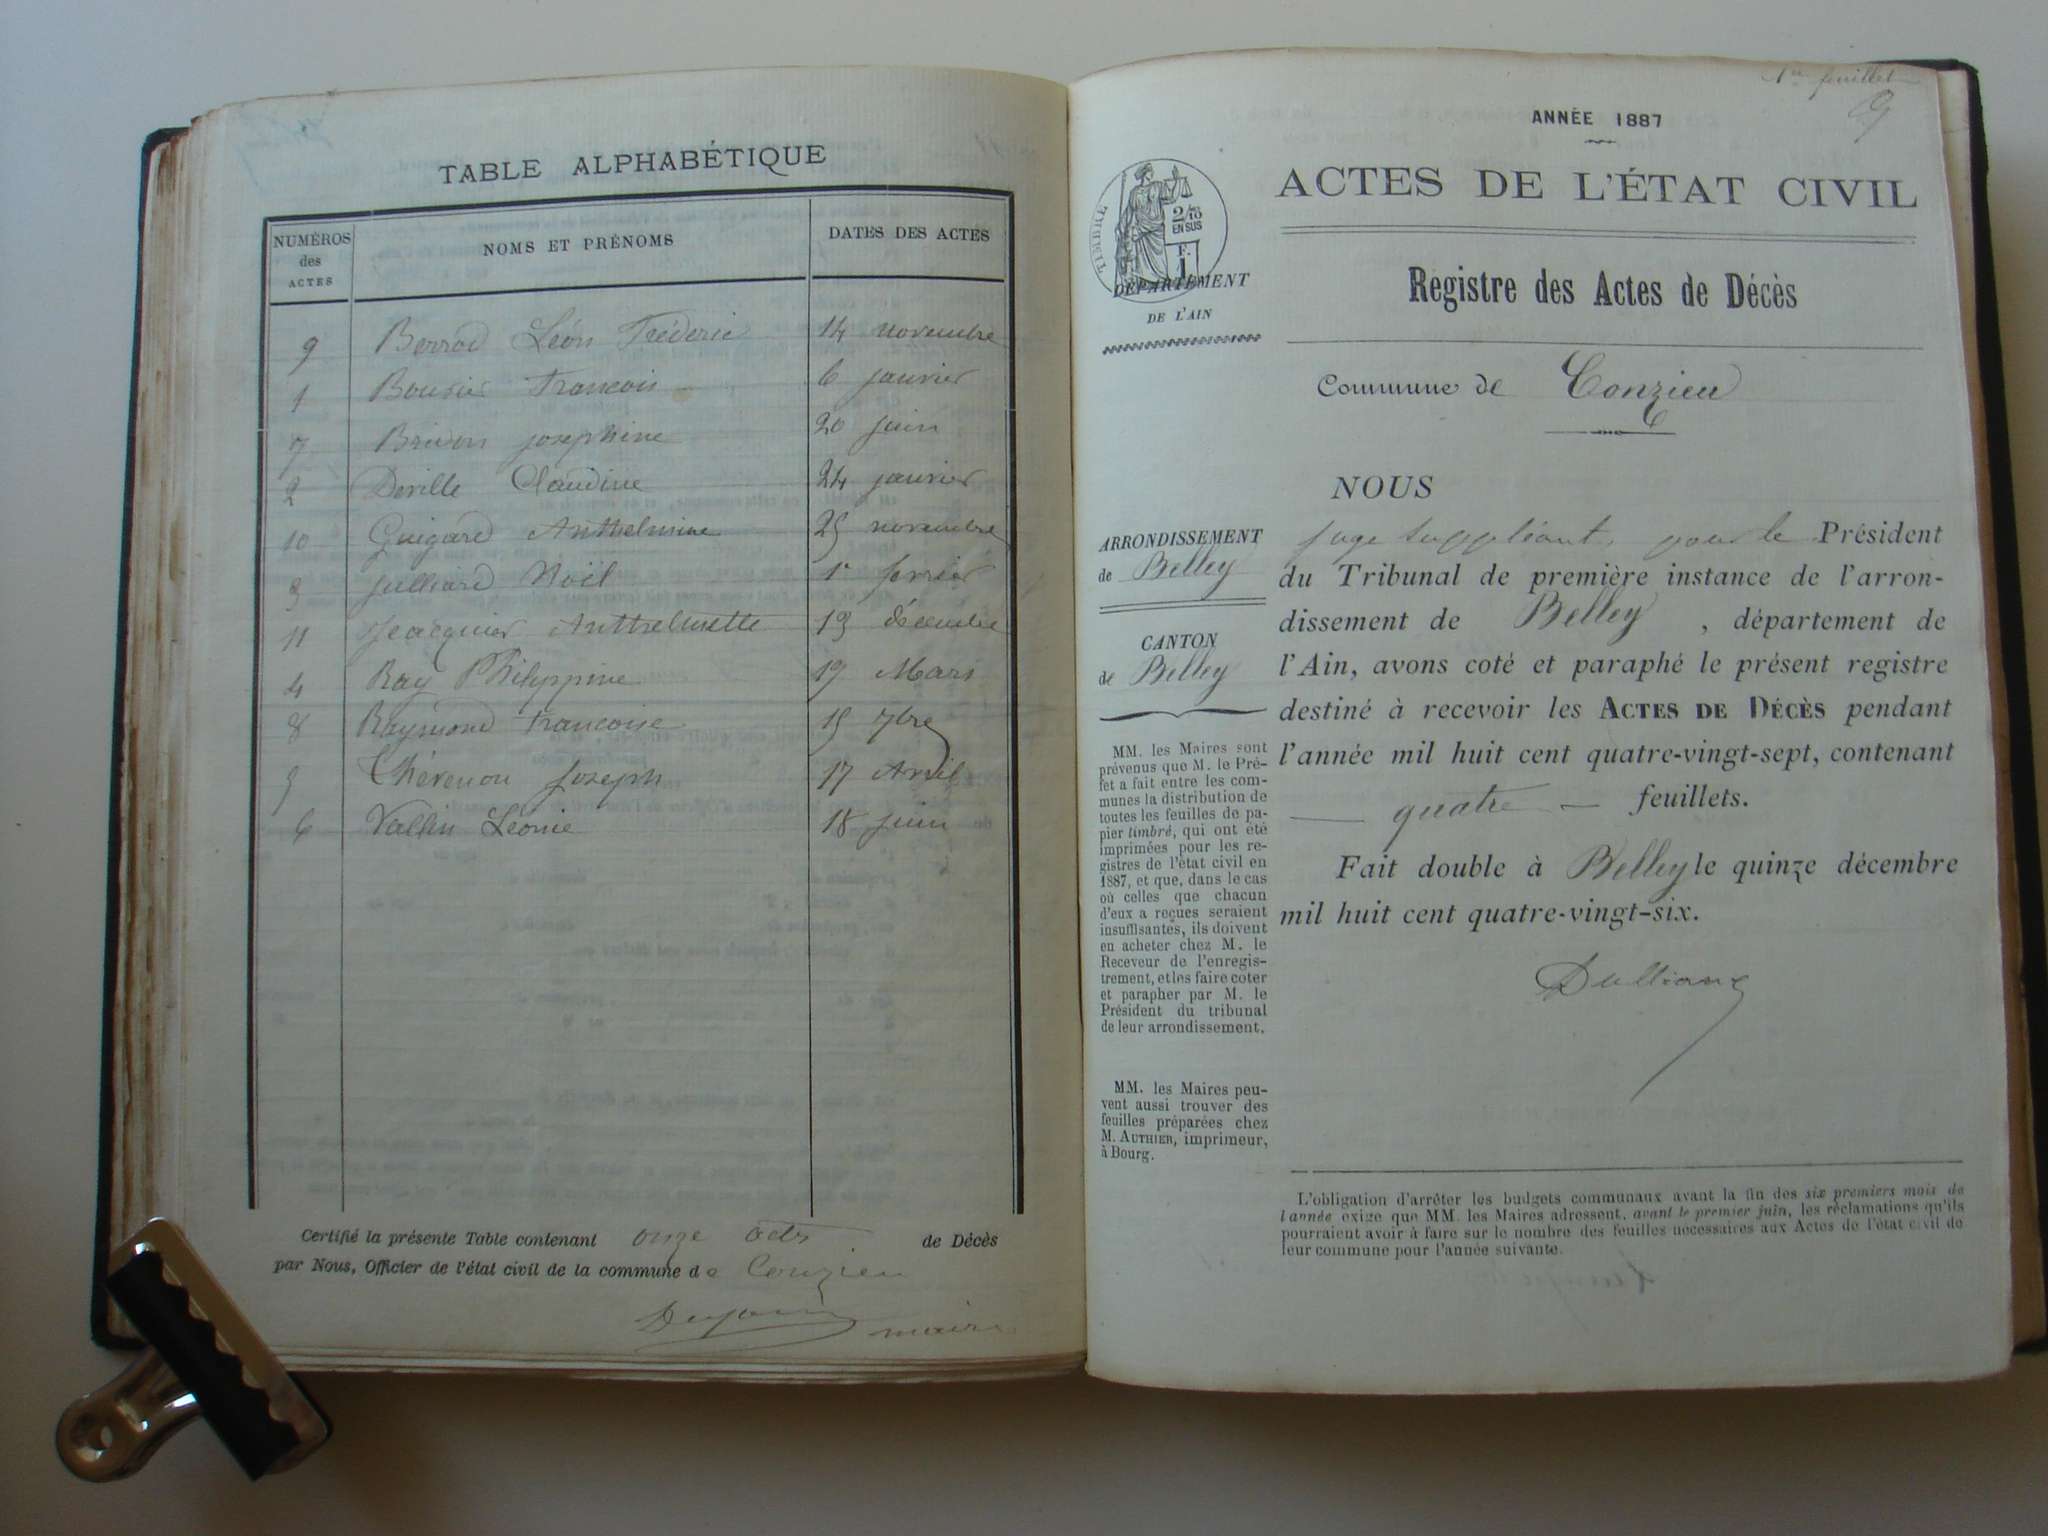 TABLE ALPHABÉTIQUE
NUMÉROS des ACTES NOMS ET PRÉNOMS DATES DES ACTES
9 Berrod Léon Fréderic 14 novembre
1 François 6 janvier
7 Josephine 20 juin
2 Deville Claudine 24 janvier
10 Guigard Anthelmine 25 novembre
3 Julliard Noël 1r fevrier
11 Jeacquier Anthelmette 13 décembre
4 Ray Philippine 19 Mars
8 Raymond Francoise 15 7bre
5 Joseph 17 Avril
6 Vallin Léonie 18 juin
Certifié la présente Table contenant onze acts de Décès
par Nous, Officier de l'état civil de la commune de Conzieu
maire
1er feuillet
ANNÉE 1887
ACTES DE L'ÉTAT CIVIL
TIMBRE
2/10
EN SUS
F.
1
DÉPARTEMENT
DE L'AIN
Registre des Actes de Décès
Commune de Conzieu
ARRONDISSEMENT
de Belley
CANTON
de Belley
MM. les Maires sont
prévenus que M. le Pré-
fet a fait entre les com-
munes la distribution de
toutes les feuilles de pa-
pier timbré, qui ont été
imprimées pour les re-
gistres de l'état civil en
1887, et que, dans le cas
où celles que chacun
d'eux a reçues seraient
insuffisantes, ils doivent
en acheter chez M. le
Receveur de l'enregis-
trement, et les faire coter
et parapher par M. le
Président du tribunal
de leur arrondissement.
MM. les Maires peu-
vent aussi trouver des
feuilles préparées chez
M. AUTHIER, imprimeur,
à Bourg.
NOUS
juge suppléant, pour le Président
du Tribunal de première instance de l'arron-
dissement de Belley, département de
l'Ain, avons coté et paraphé le présent registre
destiné à recevoir les ACTES DE DÉCÈS pendant
l'année mil huit cent quatre-vingt-sept, contenant
— quatre — feuillets.
Fait double à Belley le quinze décembre
mil huit cent quatre-vingt-six.
L'obligation d'arrêter les budgets communaux avant la fin des six premiers mois de
l'année exige que MM. les Maires adressent, avant le premier juin, les réclamations qu'ils
pourraient avoir à faire sur le nombre des feuilles nécessaires aux Actes de l'état civil de
leur commune pour l'année suivante.